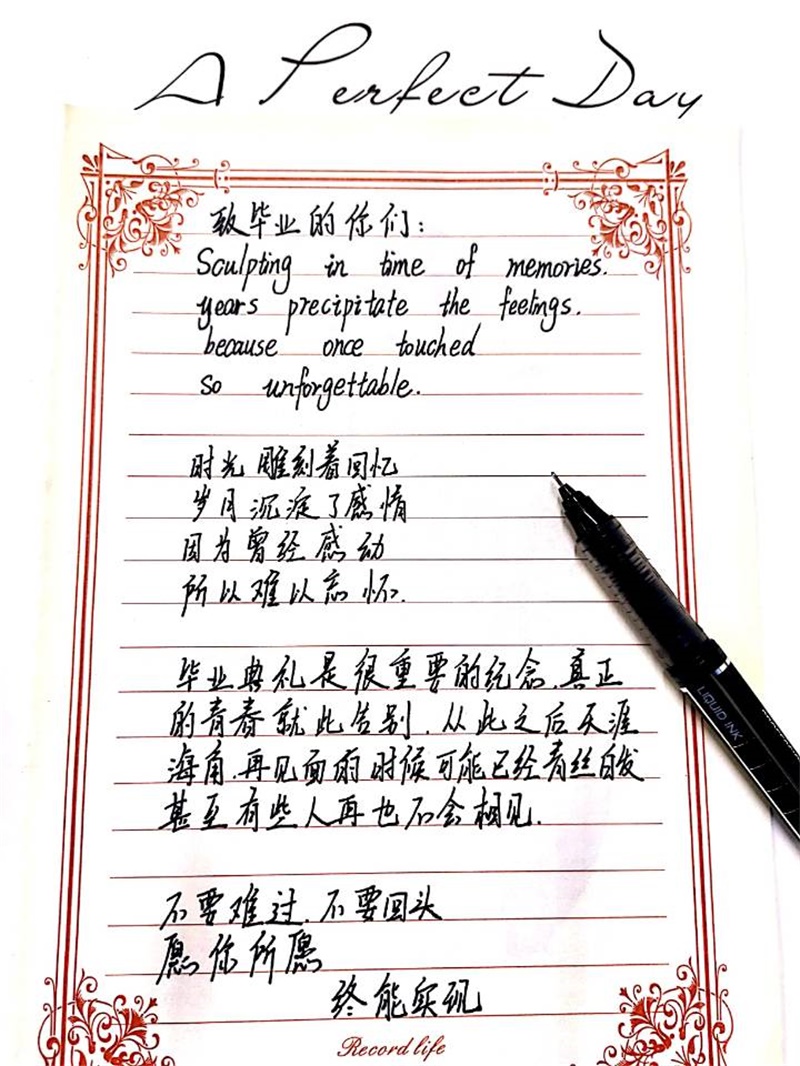 A Perfect Day
致毕业的你们:
Sculpting in time of memories.
years precipitate the feelings.
because once touched
so unforgettable.
时光雕刻着回忆
岁月沉淀了感情
因为曾经感动
所以难以忘怀.
毕业典礼是很重要的纪念.真正
的青春就此告别.从此之后天涯
海角.再见面的时候可能已经青丝白发
甚至有些人再也不会相见.
不要难过.不要回头
愿你所愿
终能实现
Record life
LIQUID INK